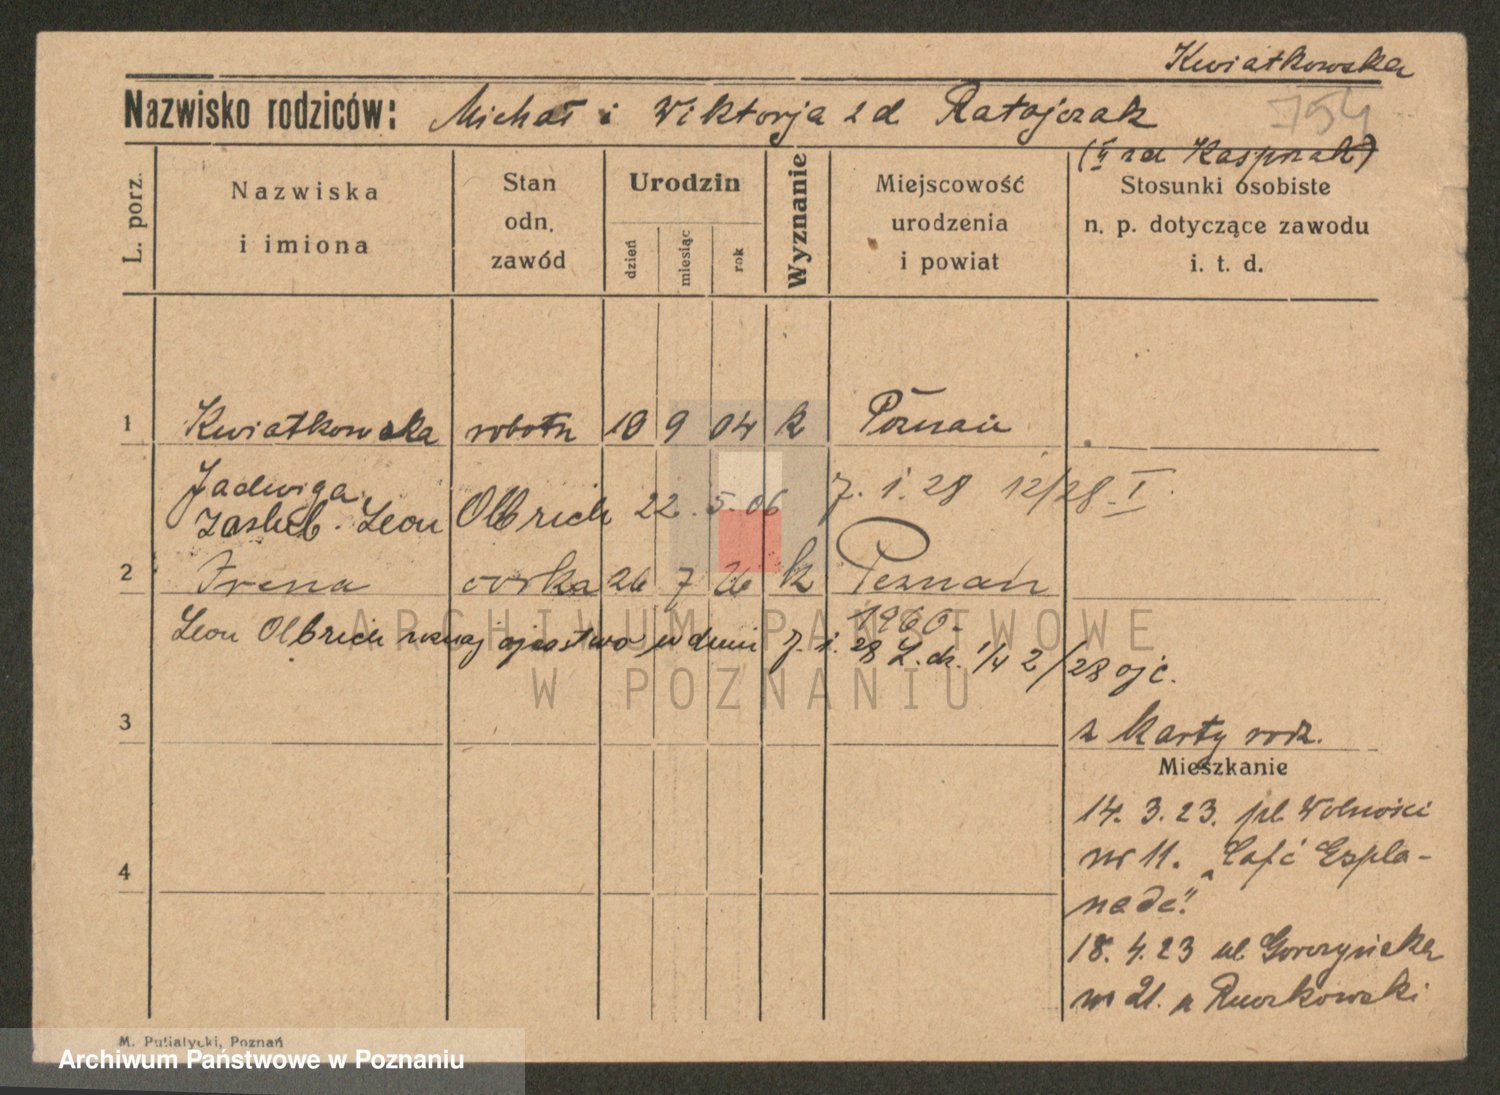 Kwiatkowska
Nazwisko rodziców: Michał i Wiktorja z d Ratajczak
754
(II zd Kasprzak)
L. porz.
Nazwiska
i imiona
Stan
odn.
zawód
Urodzin
dzień
miesiąc
rok
Wyznanie
Miejscowość
urodzenia
i powiat
Stosunki osobiste
n. p. dotyczące zawodu
i. t. d.
1 Kwiatkowska robotn 10 9 04 k Poznań
Jadwiga
zaślub. Leon Olbrich 22. 5. 06 7. 1. 28 12/28 - I.
2 Irena córka 26 7 26 k Poznań
1960.
Leon Olbrich uznaj ojcostwo w dniu 7. 1. 28 L. dz. 1/4 2/28 ojc.
3
z karty rodz.
Mieszkanie
14. 3. 23. pl. Wolności
nr 11. „Café Espla-
nade".
4
18. 4. 23 ul Gorczyńska
nr 21. u Ruszkowski
M. Putiatycki, Poznań
ARCHIWUM PAŃSTWOWE
W POZNANIU
Archiwum Państwowe w Poznaniu